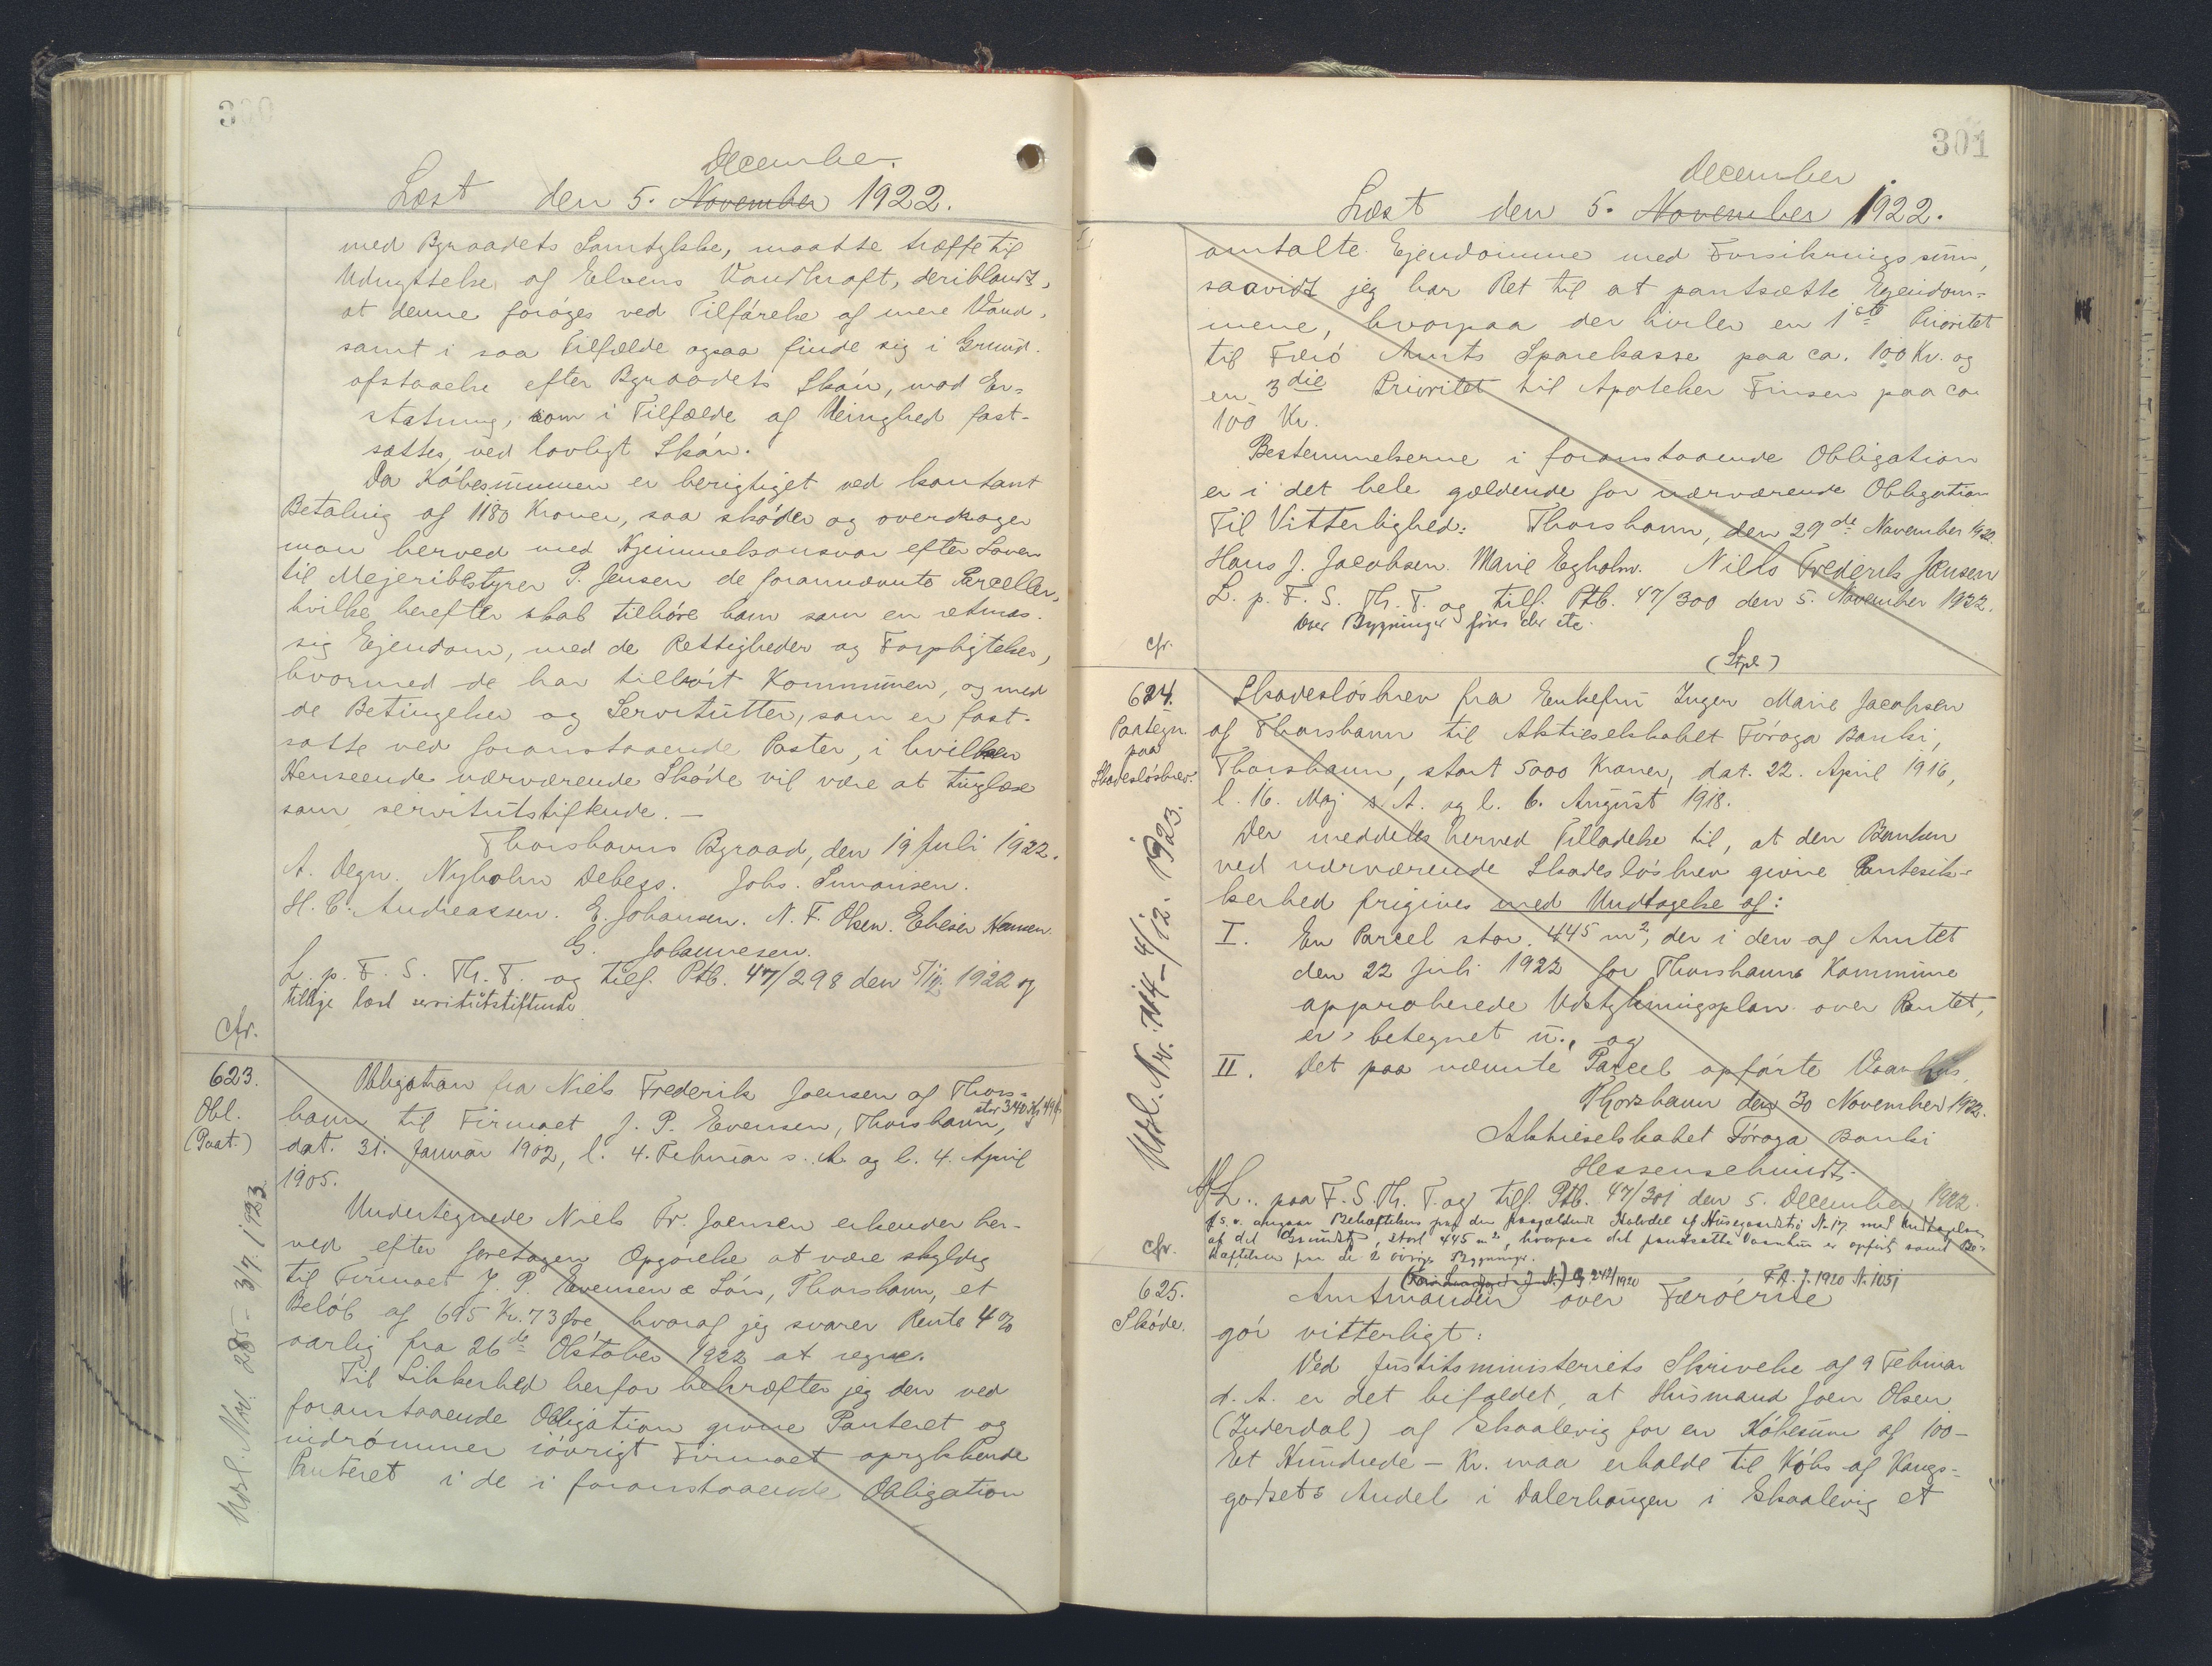 300
December.
Læst den 5. November 1922.
med Byraadets Samtykke, maatte træffe til
Udnyttelse af Elvens Vandkraft, deriblandt,
at denne forøges ved Tilførelse af mere Vand,
samt i saa Tilfælde ogsaa finde sig i Grund-
afstaaelse efter Byraadets Skøn, mod Er-
statning, som i Tilfælde af Uenighed fast-
sættes ved lovligt Skøn.
Da Købesummen er berigtiget ved kontant
Betaling af 1180 Kroner, saa skøder og overdrager
man herved med Hjemmelsansvar efter Loven
til Mejeribestyrer P. Jensen de forannævnte Parceller,
hvilke herefter skal tilhøre ham som en retmæs-
sig Ejendom, med de Rettigheder og Forpligtelser,
hvormed de har tilhørt Kommunen, og med
de Betingelser og Servitutter, som er fast-
satte ved foranstaaende Poster, i hvilken
Henseende nærværende Skøde vil være at tinglæse
som servitutstiftende. —
Thorshavns Byraad, den 19 Juli 1922.
A. Degn. Nyholm Debess. Johs. Simonsen.
H. C. Andreassen. E. Johansen. N. F. Olsen. Elieser Hansen.
G. Johannesen.
L. p. F. S. Th. T. og tilf. Ptb. 47/298 den 5/12 1922 og
tillige læst servitutstiftende
cfr.
623.
Obl.
(Paat.)
Obligation fra Niels Frederik Joensen af Thors-
havn til Firmaet J. P. Evensen, Thorshavn, stor 340 Kr. 49 Ø.
dat. 31. Januar 1902, l. 4. Februar s. A. og l. 4. April
1905.
Undertegnede Niels Fr. Joensen erkender her-
ved efter foretagen Opgørelse at være skyldig
til Firmaet J. P. Evensen & Søn, Thorshavn, et
Beløb af 695 Kr. 73 Øre hvoraf jeg svarer Rente 4 %
aarlig fra 26de Oktober 1922 at regne.
Til Sikkerhed herfor bekræfter jeg den ved
foranstaaende Obligation givne Panteret og
indrømmer iøvrigt Firmaet oprykkende
Panteret i de i foranstaaende Obligation
Udsl. Nr. 285 - 3/7. 1923
301
December
Læst den 5. November 1922.
omtalte Ejendomme med Forsikringssum,
saavidt jeg har Ret til at pantsætte Ejendom-
mene, hvorpaa der hviler en 1ste Prioritet
til Færø Amts Sparekasse paa ca. 100 Kr. og
en 3die Prioritet til Apoteker Finsen paa ca
100 Kr.
Bestemmelserne i foranstaaende Obligation
er i det hele gældende for nærværende Obligation
Til Vitterlighed: Thorshavn, den 29de November 1922.
Hans J. Jacobsen. Marie Egholm. Niels Frederik Joensen
L. p. F. S. Th. T. og tilf. Ptb. 47/300 den 5. November 1922.
Over Bygninger føres der etc.
cfr.
(Stpl.)
624.
Paategn.
paa
Skadesløsbrev.
Skadesløsbrev fra Enkefru Inger Marie Jacobsen
af Thorshavn til Aktieselskabet Føroya Banki,
Thorshavn, stort 5000 Kroner, dat. 22. April 1916,
l. 16. Maj s. A. og l. 6. August 1918.
Der meddeles herved Tilladelse til, at den Banken
ved nærværende Skadesløsbrev givne Pantesik-
kerhed frigives med Undtagelse af:
I. En Parcel stor. 445 m², der i den af Amtet
den 22 Juli 1922 for Thorshavns Kommune
approberede Udstykningsplan over Pantet,
er betegnet u., og
II. Det paa nævnte Parcel opførte Vaanhus.
Thorshavn den 30 November 1922.
Aktieselskabet Føroya Banki
Hessenschmidt.
L. paa F. S. Th. T. og tilf. Ptb. 47/301 den 5. December 1922.
Behæftelsen paa den paagældende Halvdel af Husegaardstr. Nr. 17 med Undtagelse
af det Grundst., stort 445 m², hvorpaa det pantsatte Vaanhus er opført samt Be-
hæftelsen paa de 2 øvrige Bygninger.
cfr.
Udsl. Nr. 714 - 4/12. 1923.
G. 242/1920 FA. J. 1920 N. 1051
625.
Skøde.
Amtmanden over Færøerne
gør vitterligt:
Ved Justitsministeriets Skrivelse af 9 Februar
d. A. er det bifaldet, at Husmand Joen Olsen
(Inderdal) af Skaalevig for en Købesum af 100 -
Et Hundrede - Kr. maa erholde til Købs af Kongs-
godsets Andel i Dalerhaugen i Skaalevig et